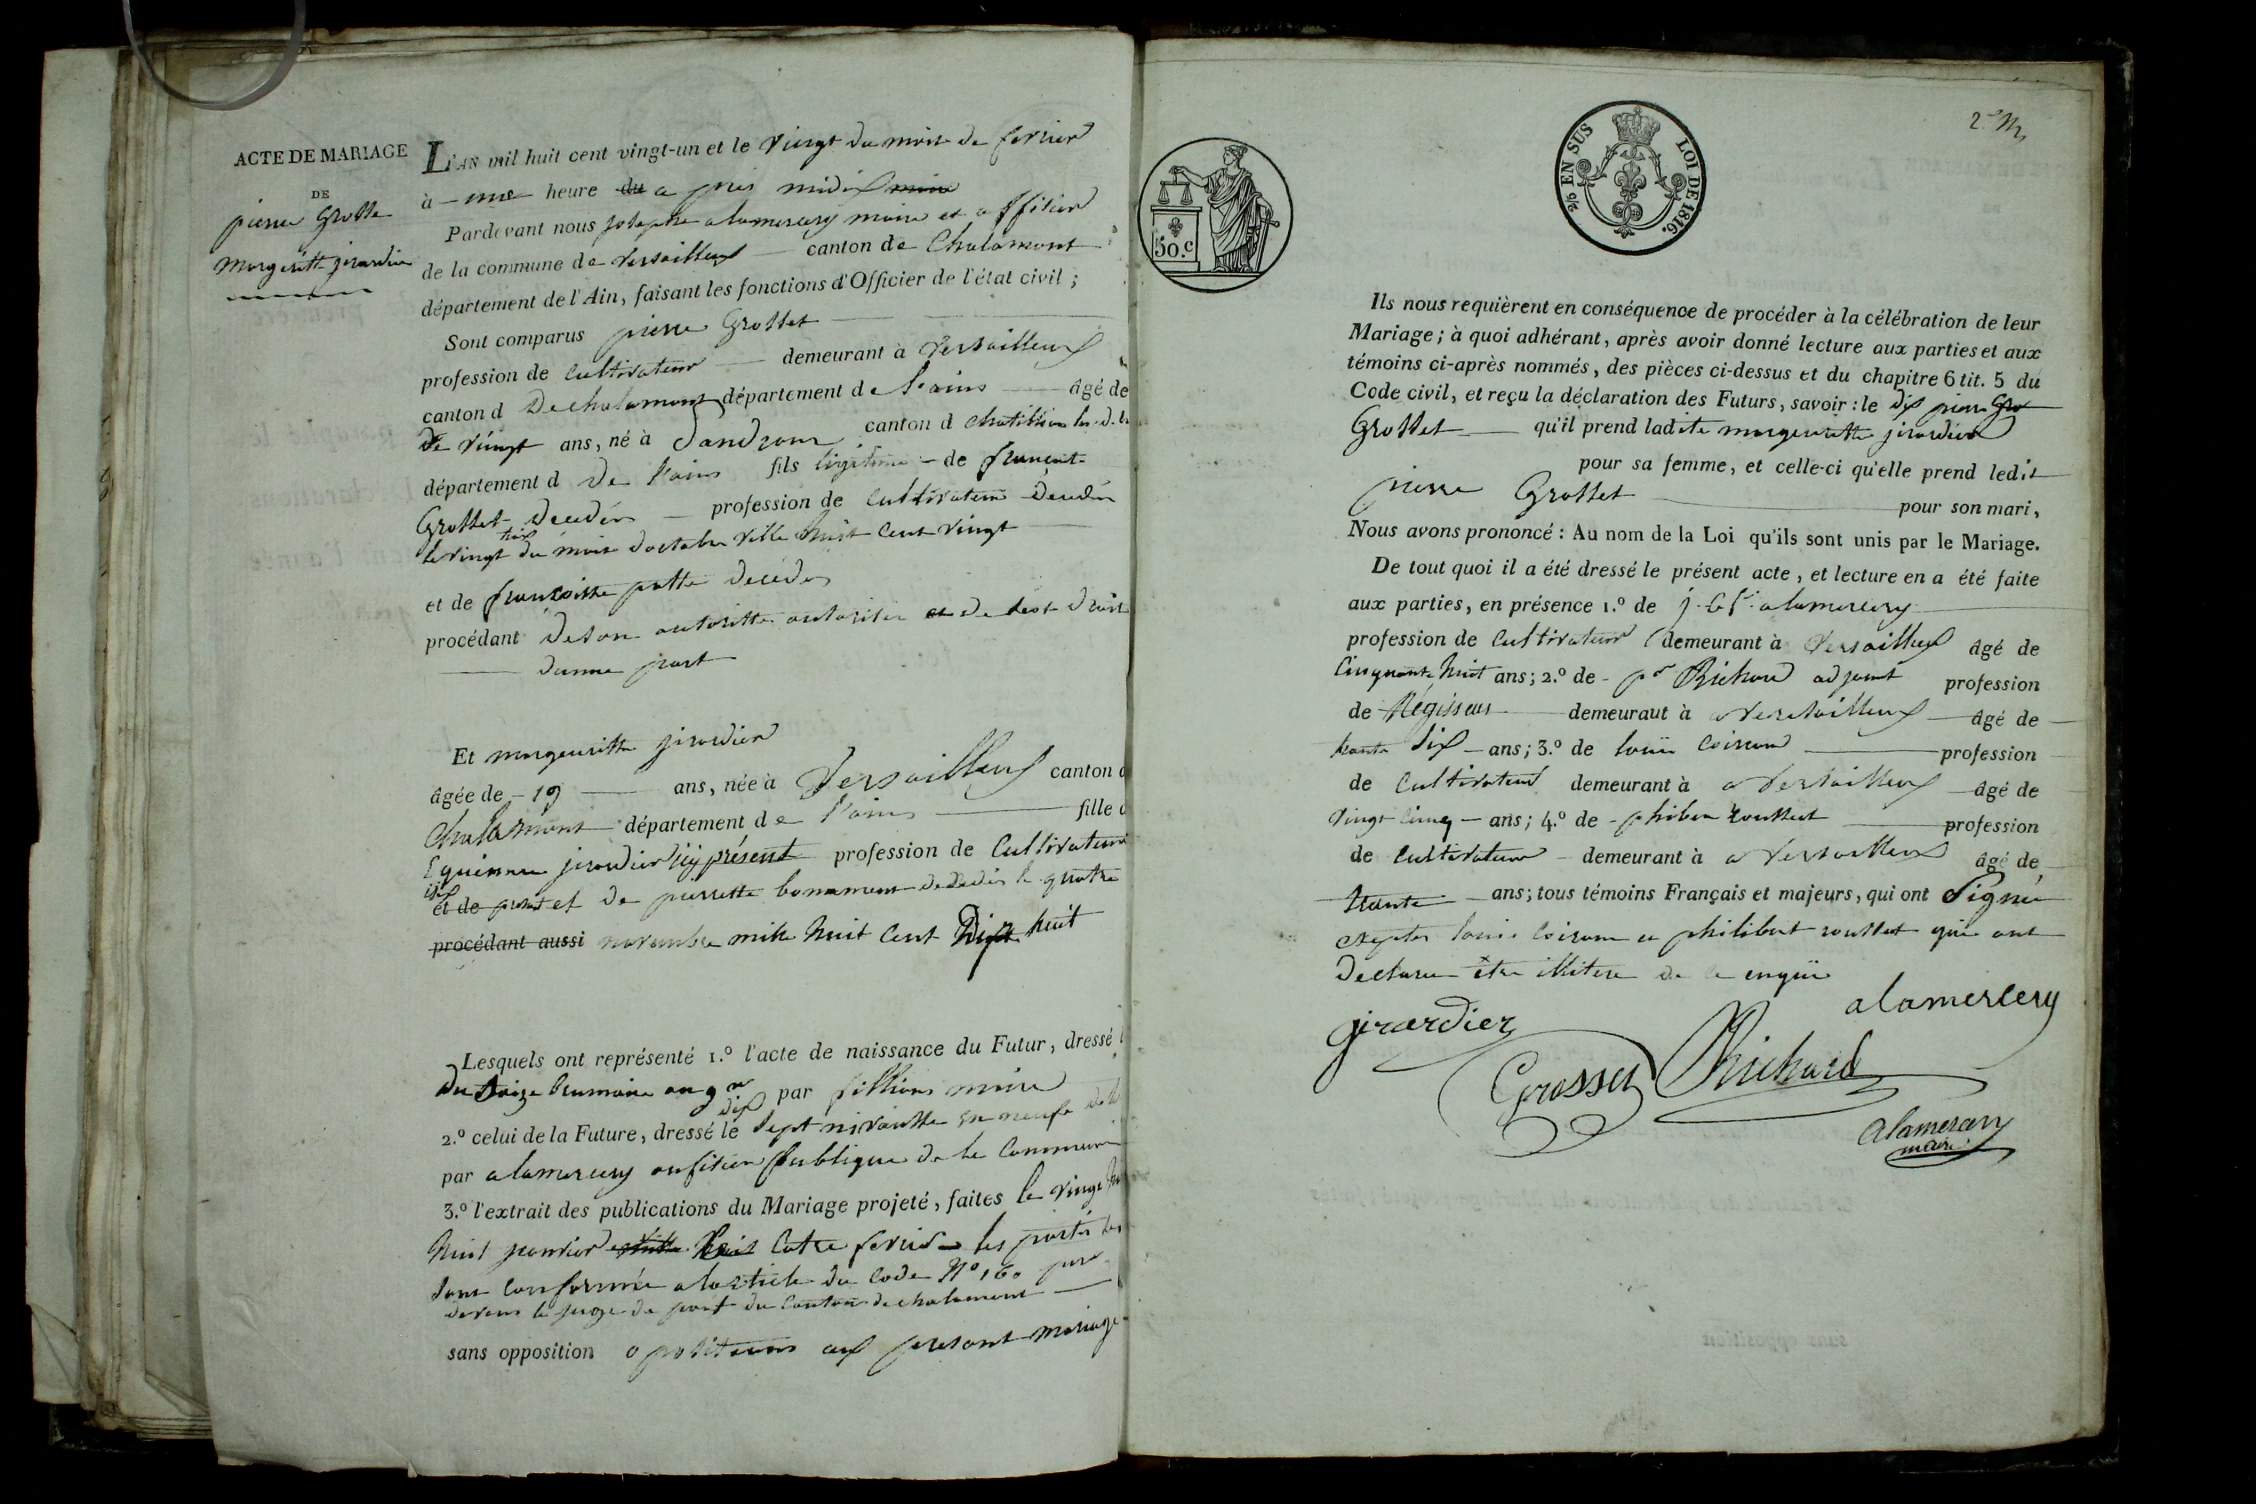 ACTE DE MARIAGE
DE
pierre Grosse
margeritte girardier
L'AN mil huit cent vingt-un et le vingt du mois de fevrier
à une heure du a pres midi
Pardevant nous josephe alamercery maire et offisier
de la commune de versailleux canton de Chalamont
département de l'Ain, faisant les fonctions d'Officier de l'état civil ;
Sont comparus pierre Grosset
profession de cultivateur demeurant à versailleux
canton d De chalamont département de l'ains âgé de
de vingt ans, né à Sandrans canton d
département d De l'ains fils legitime de
Grosset Decedés profession de cultivateur Decedés
le vingt trois du mois doctobre mille huit cent vingt
et de franzoisse patte decedés
procédant De son autoritte et de droit
dunne part
Et margeuritte girardier
âgée de 19 ans, née à Versailleux canton d
Chalamont département de l'ains fille d
girardier présent profession de Cultivateur
et de et de pierrette decedés le quatre
procédant aussi novembre mille huit cent Dix huit
Lesquels ont représenté 1.º l'acte de naissance du Futur, dressé l
du brumaire an 9 par fillion maire
2.º celui de la Future, dressé le dix sept nivausse en neufe
par alamercery aufisier publique de la commune
3.º l'extrait des publications du Mariage projeté, faites le vingt
huit janvier catre fevrier les partis
sont conformée a lartiele du code Nº 160 par
devans le juge de paet du canton de chalamont
sans opposition opositions aux presant mariage
50.c
2/6 EN SUS LOI DE 1816.
2e M
Ils nous requièrent en conséquence de procéder à la célébration de leur
Mariage ; à quoi adhérant, après avoir donné lecture aux parties et aux
témoins ci-après nommés, des pièces ci-dessus et du chapitre 6 tit. 5 du
Code civil, et reçu la déclaration des Futurs, savoir : le dit pierre Gro
Grosset qu'il prend ladite margeuritte girardier
pour sa femme, et celle-ci qu'elle prend ledit
pierre Grosset pour son mari,
Nous avons prononcé : Au nom de la Loi qu'ils sont unis par le Mariage.
De tout quoi il a été dressé le présent acte, et lecture en a été faite
aux parties, en présence 1.º de alamercery
profession de cultivateur demeurant à versailleux âgé de
Cinquante huit ans ; 2.º de pr Richard adjoint profession
de Régisseur demeuraut à a versailleux âgé de
trante six ans ; 3.º de louis coiron profession
de cultivateur demeurant à a versailleux âgé de
vingt cinq ans ; 4.º de rousset profession
de cultivateur demeurant à a versailleux âgé de
trante ans ; tous témoins Français et majeurs, qui ont signé
exepter louis coiron et philibert rousset qui ont
Declaré être illitere de
girardier
alamercery
Grosset
Richard
alamercery
maire